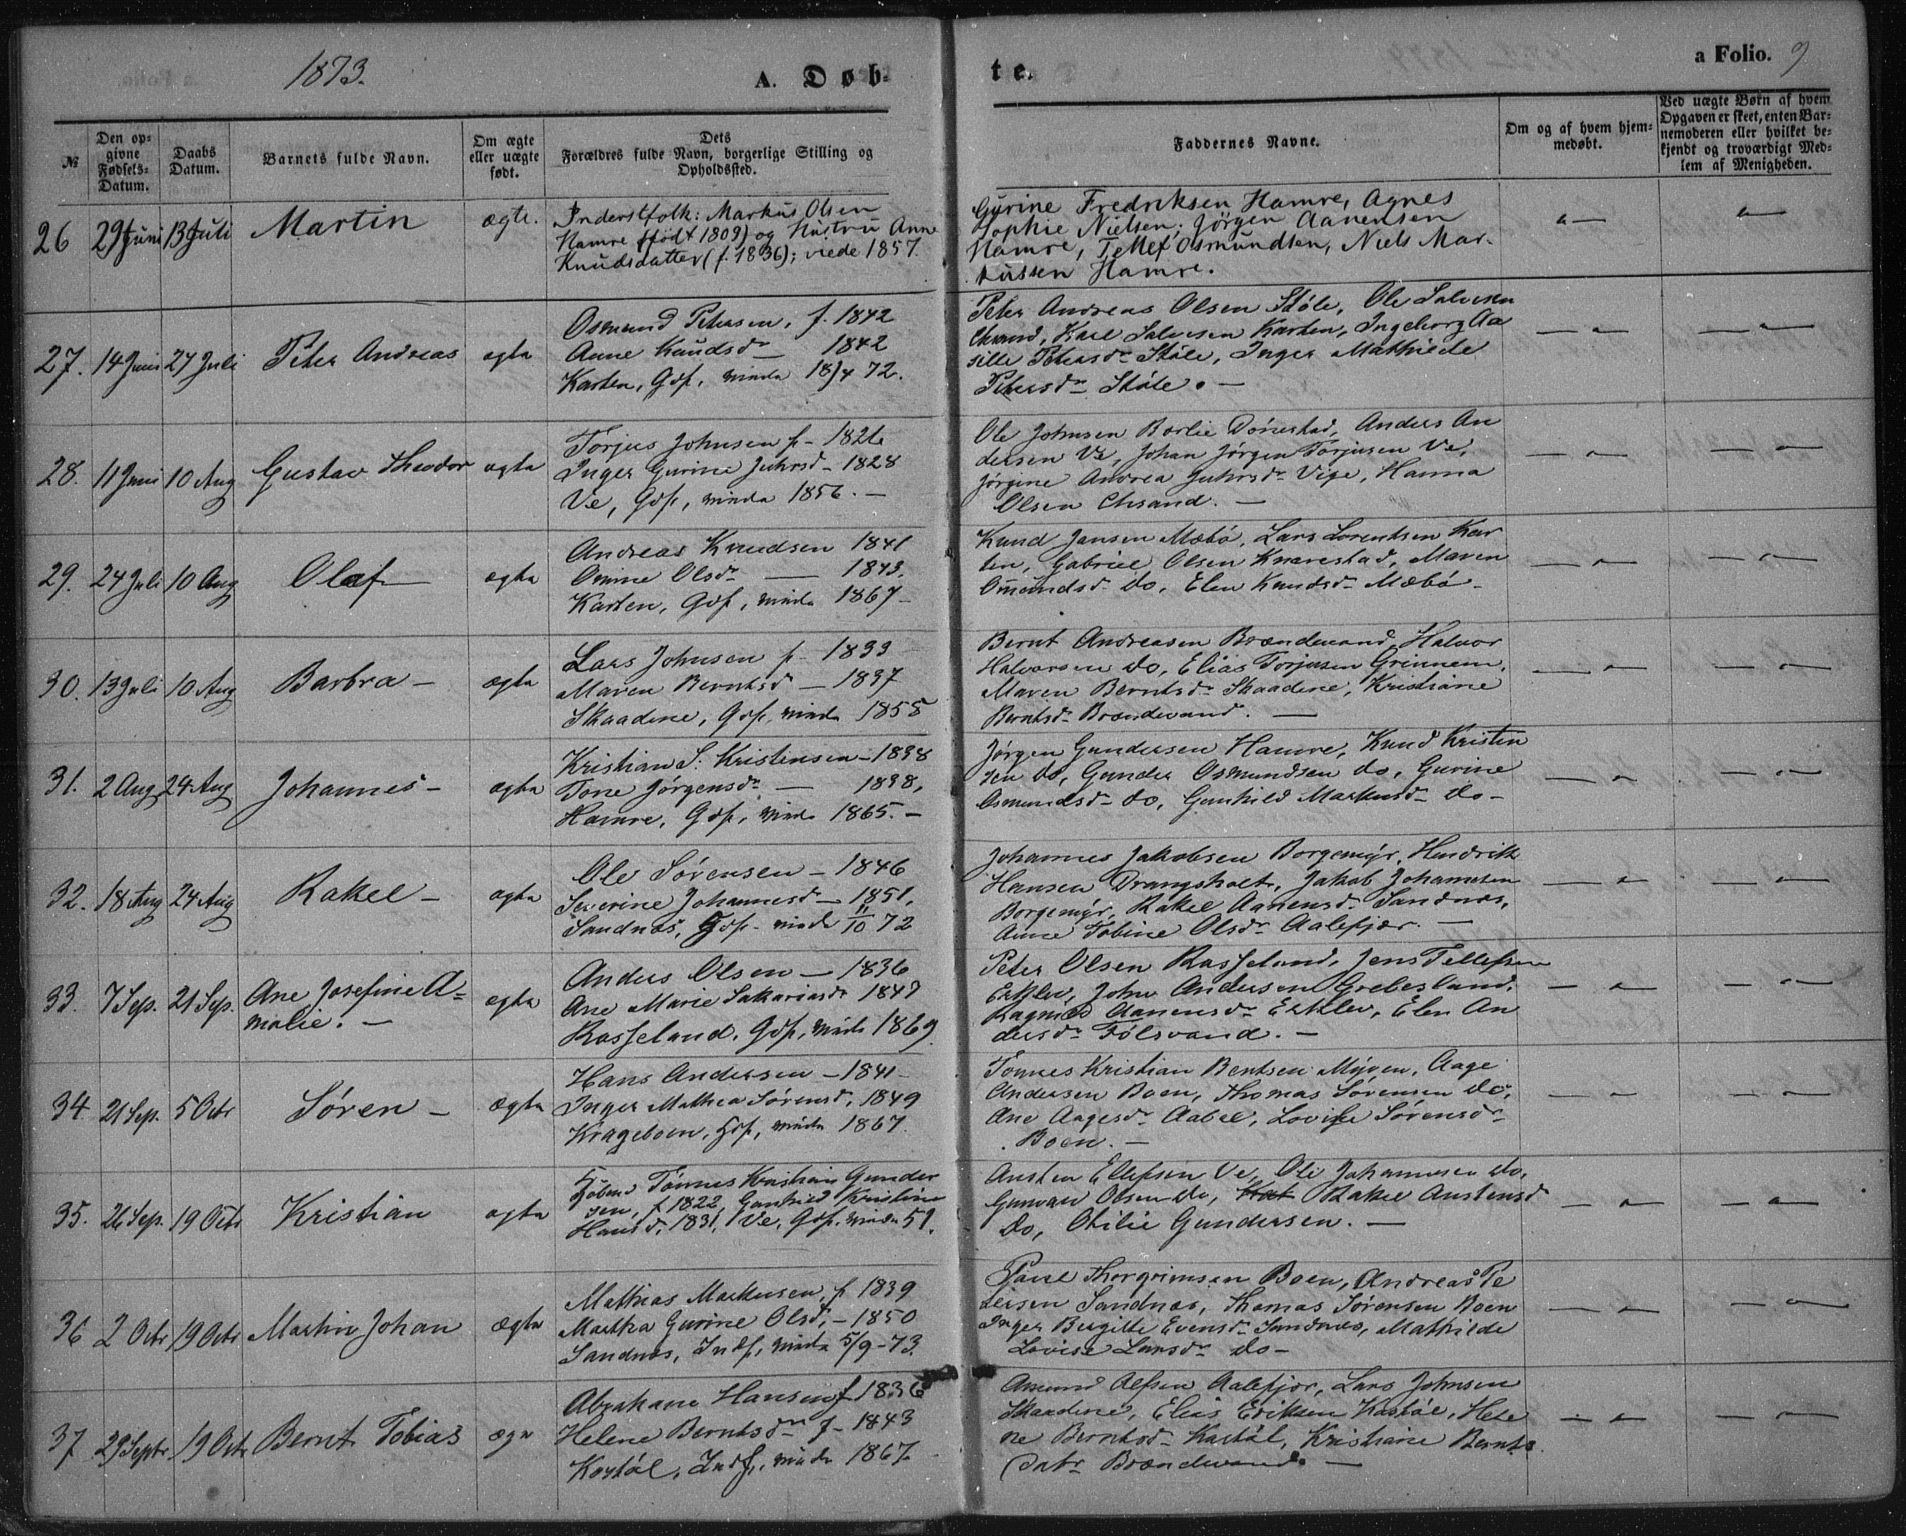 1873.
A. Døb-
te.
a Folio. 9
№
Den op-
givne
Fødsels-
Datum.
Daabs
Datum.
Barnets fulde Navn.
Om ægte
eller uægte
født.
Dets
Forældres fulde Navn, borgerlige Stilling og
Opholdssted.
Faddernes Navne.
Om og af hvem hjem-
medøbt.
Ved uægte Børn af hvem
Opgaven er skeet, enten Bar-
nemoderen eller hvilket be-
kjendt og troværdigt Med-
lem af Menigheden.
26 29 Juni 13 Juli Martin ægte.
Inderstfolk: Markus Olsen
Hamre (født 1809) og Hustru Anne
Knudsdatter (f. 1836); viede 1857.
Gurine Fredriksen Hamre, Agnes
Sophie Nielsen; Jørgen Aanensen
Hamre, Tellef Osmundsen, Niels Mar-
kussen Hamre.
27. 14 Juni 27 Juli Peter Andreas ægta
Osmund Petersen, f. 1842
Anne Knudsdr — 1842
Karten, Gdf, vinda 18/4 72.
Peter Andreas Olsen Støle, Ole Salvesen
Chrand, Karl Salvesen Karten, Ingeborg Aa
sille Petersdr Støle, Inger Mathilde
Petersdr Støle. —
28. 11 Juni 10 Aug Gustav Theodor ægta
Torjus Johnsen f – 1826
Inger Gurine Juhrsd – 1828
Ve, Gdf, vinda 1856. —
Ole Johnsen Borlie Dønestad, Anders An
dersen Ve, Johan Jørgen Torjusen Ve,
Jørgine Andrea Juhrsdr Vige, Hanna
Olsen Chrsand. —
29. 24 Juli 10 Aug Olaf ægta
Andreas Knudsen 1841
Omine Olsdr — 1843.
Karten, Gdf, vinda 1867 –
Knud Jansen Mæbø, Lars Lorentsen Kar
ten, Gabriel Olsen Knarestad, Maren
Omundsdr do, Elen Knudsdr Mæbø –
30. 13 Juli 10 Aug Barbra – ægta
Lars Johnsen f – 1833
Maren Berntsd — 1837
Skaadene, Gdf, vinda 1858
Bernt Andreasen Brændevand, Halvor
Halvorsen do, Elias Torjusen Grinnem,
Maren Berntsdr Skaadene, Kristiane
Berntsdr Brændevand. —
31. 2 Aug 24 Aug Johannes – ægta
Kristian S. Kristensen – 1838
Tone Jørgensdr — 1838,
Hamre, Gdf, vinda 1865. –
Jørgen Gundersen Hamre, Knud Kristen
sen do, Gunder Osmundsen do, Gurine
Osmundsdr do, Gunhild Markusdr do –
32. 18 Aug 24 Aug Rakel – ægta
Ole Sørensen – 1846
Severine Johannesd – 1851,
Sandnæs, Gdf – vinda 11/10 72
Johannes Jakobsen Borgemyr, Hendrik
Hansen Drangsholt, Jakob Johannesen
Borgemyr, Rakel Aanensd. Sandnæs,
Anne Tobine Olsdr Aalefjær. —
33. 7 Sep. 21 Sep. Ane Josefine A= ægta
malie. —
Anders Olsen — 1836
Ane Marie Sakariasdr 1847
Rosseland, Gdf, vinda 1869.
Peter Olsen Rosseland, Jens Tellefsen
Erklev, John Andersen Grebesland,
Ragnild Aanensdr Erklev, Elen An
dersdr Følsvand. —
34 21 Sep. 5 Octr Søren – ægta
Hans Andersen – 1841 –
Inger Mathea Sørensd. 1849
Krageboen, Gdf, vinda 1867.
Tønnes Kristian Berntsen Myren, Aage
Andersen Boen, Thomas Sørensen do,
Ane Aagesdr Aabel, Lovise Sørensdr
Boen. —
35. 26 Sep. 19 Octr Kristian ægta
Tønnes Kristian Gunder
sen, f 1822, Gunhild Kristine
Hansd. 1831, Ve, Gdf, vinda 51.
Austen Ellefsen Ve, Ole Johannesen do,
Gunvald Olsen do, Rakel Austensd
do, Otilie Gundersen. —
36 2 Octr 19 Octr Martin Johan ægta
Mathias Markusen, f 1839
Martha Gurine Olsd, – 1850
Sandnæs, Indf, vinda 5/9 – 73.
Paul Thorgrimsen Boen, Andreas Pe
tersen Sandnæs, Thomas Sørensen Boen
Inger Birgitte Evensdr Sandnæs, Mathilde
Lovise Larsdr do –
37. 29 Septr 19 Octr Bernt Tobias ægta
Abraham Hansen f 1836
Helene Berntsdr f – 1843
Kostøl, Indf, vinda 1867.
Amund Alfsen Aalefjær, Lars Johnsen
Skaadene, Elias Eriksen Kostøl, Hele
ne Berntsdr Kostøl, Kristiane Bernts
datr Brændevand. —